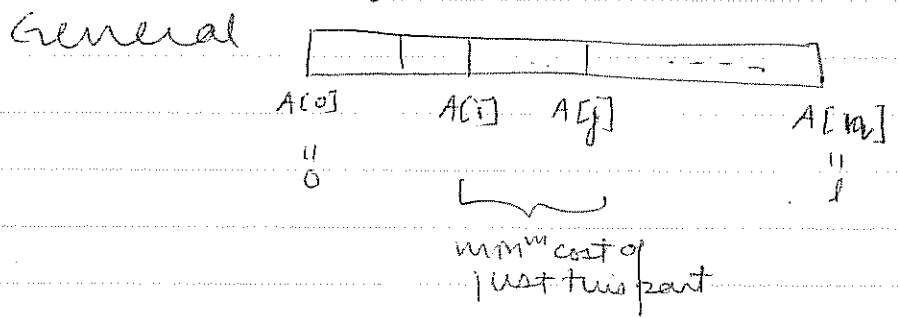 General
A[0] A[i] A[j] A[n]
" "
0 l
min^m cost of
just this part